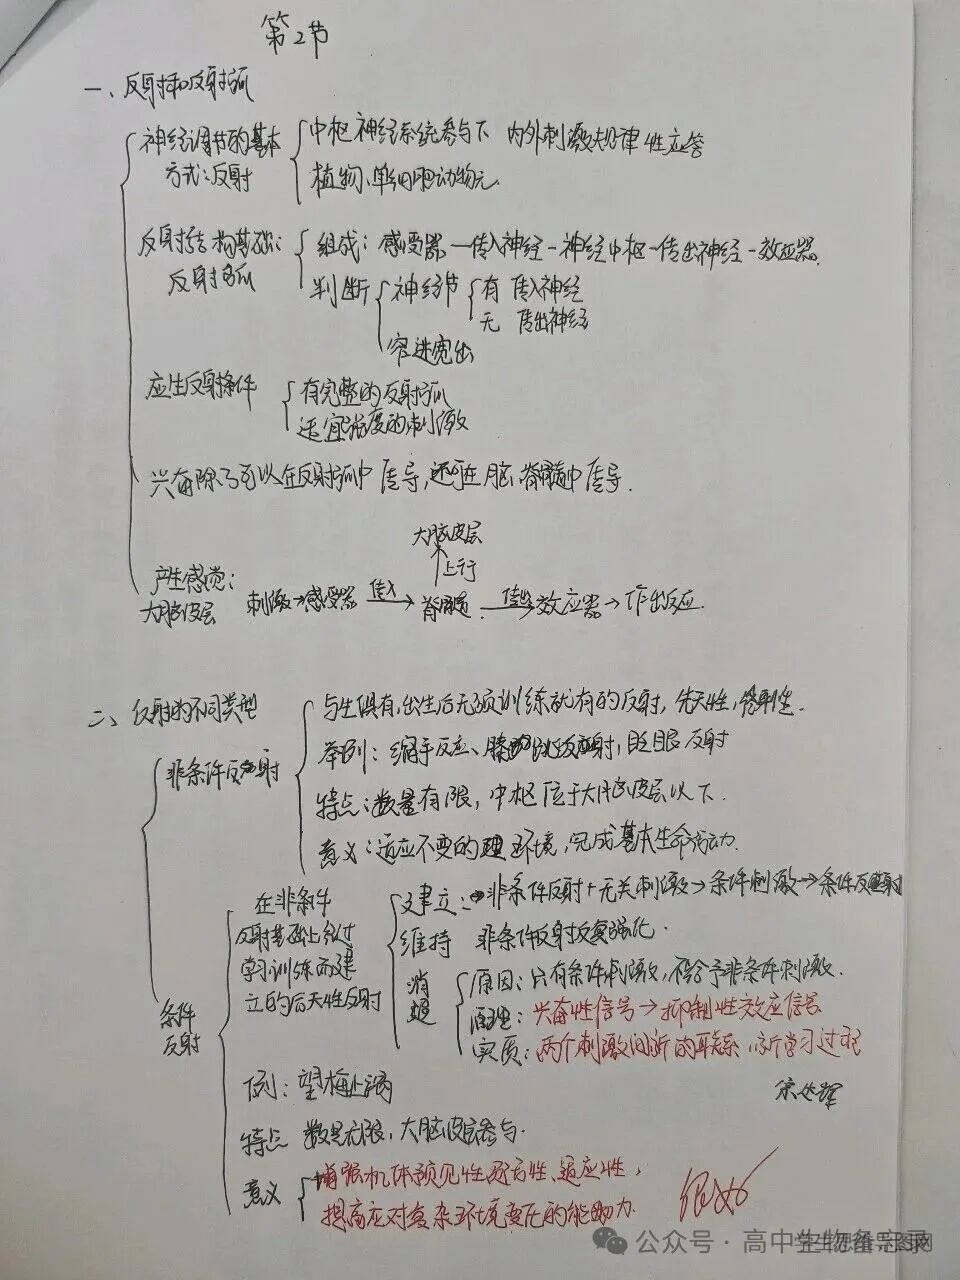 第2节
一、反射和反射弧
神经调节的基本
方式:反射
中枢神经系统参与下 内外刺激规律性应答
植物、单细胞动物无.
反射结构基础:
反射弧
组成:感受器—传入神经—神经中枢—传出神经—效应器.
判断
神经节
有 传入神经
无 传出神经
窄进宽出
应生反射条件
有完整的反射弧
适宜强度的刺激
兴奋除了可以在反射弧中传导,还可在脑、脊髓中传导.
产生感觉:
大脑皮层
大脑皮层
上行
刺激→感受器 传入→ 脊髓 传出→ 效应器→作出反应.
二、反射的不同类型
非条件反射
与生俱有,出生后无须训练就有的反射,先天性,
举例:缩手反应、膝跳反射,眨眼反射
特点:数量有限,中枢位于大脑皮层以下.
意义:适应不变的环境,完成基本生命活动.
条件
反射
在非条件
反射基础上经过
学习训练而建
立的后天性反射
建立:非条件反射+无关刺激→条件刺激→条件反射
维持 非条件反射反复强化.
消退
原因:只有条件刺激,不给予非条件刺激.
原理:兴奋性信号→抑制性效应信号
实质:两个刺激间新的联系,新学习过程
例:望梅止渴
特点 数量无限,大脑皮层参与.
意义
增强机体预见性、适应性,
提高应对复杂环境变化的能力.
很好
公众号·高中生物备忘录